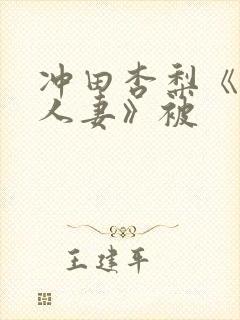 冲田杏梨《
人妻》被
王建平